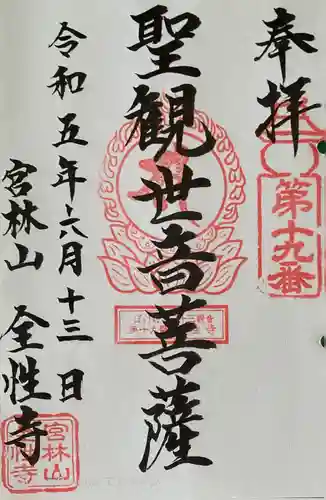 奉拝
第十九番
聖観世音菩薩
令和五年六月十三日
宮林山
全性寺
宮林山
全性寺